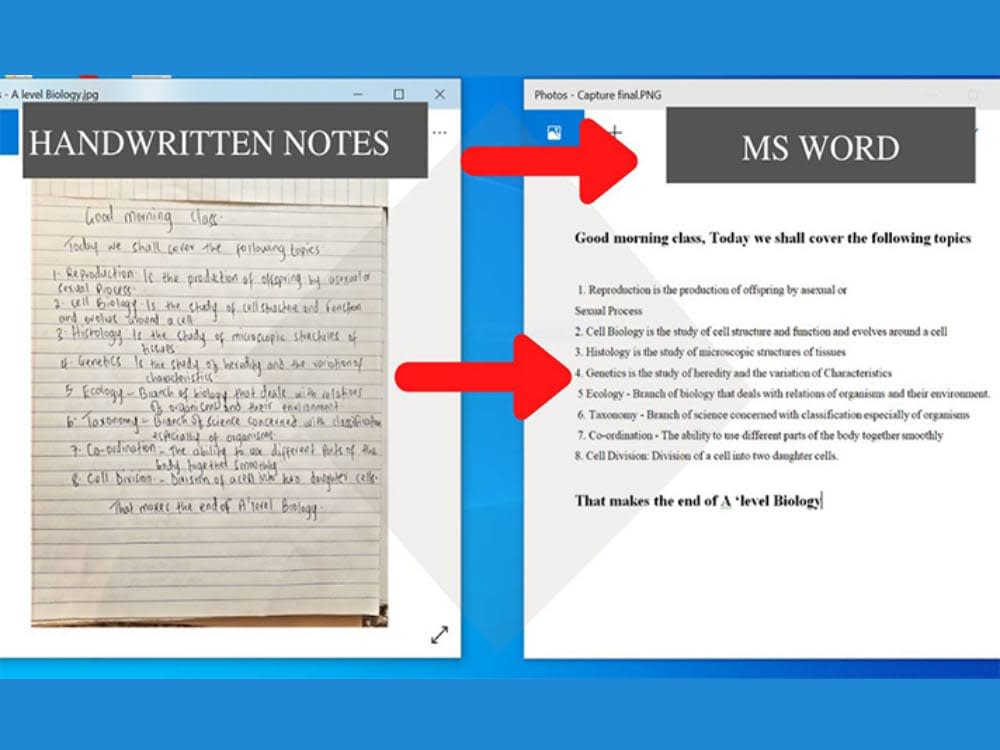 s - A level Biology.jpg
HANDWRITTEN NOTES
Good morning Class.
Today we shall cover the following topics
1. Reproduction: Is the production of offspring by asexual or
sexual Process.
2. Cell Biology: Is the study of cell structure and function
and evolves around a cell.
3. Histology Is the study of microscopic structures of
tissues
4. Genetics Is the study of heredity and the variation of
characteristics
5 Ecology - Branch of biology that deals with relations
of organisms and their environment.
6. Taxonomy - Branch of science concerned with classification
especially of organisms.
7. Co-ordination - The ability to use different parts of the
body together smoothly
8. Cell Division - Division of a cell into two daughter cells.
That makes the end of A'level Biology.
Photos - Capture final.PNG
MS WORD
Good morning class, Today we shall cover the following topics
1. Reproduction is the production of offspring by asexual or
Sexual Process
2. Cell Biology is the study of cell structure and function and evolves around a cell
3. Histology is the study of microscopic structures of tissues
4. Genetics is the study of heredity and the variation of Characteristics
5 Ecology - Branch of biology that deals with relations of organisms and their environment.
6. Taxonomy - Branch of science concerned with classification especially of organisms
7. Co-ordination - The ability to use different parts of the body together smoothly
8. Cell Division: Division of a cell into two daughter cells.
That makes the end of A ‘level Biology